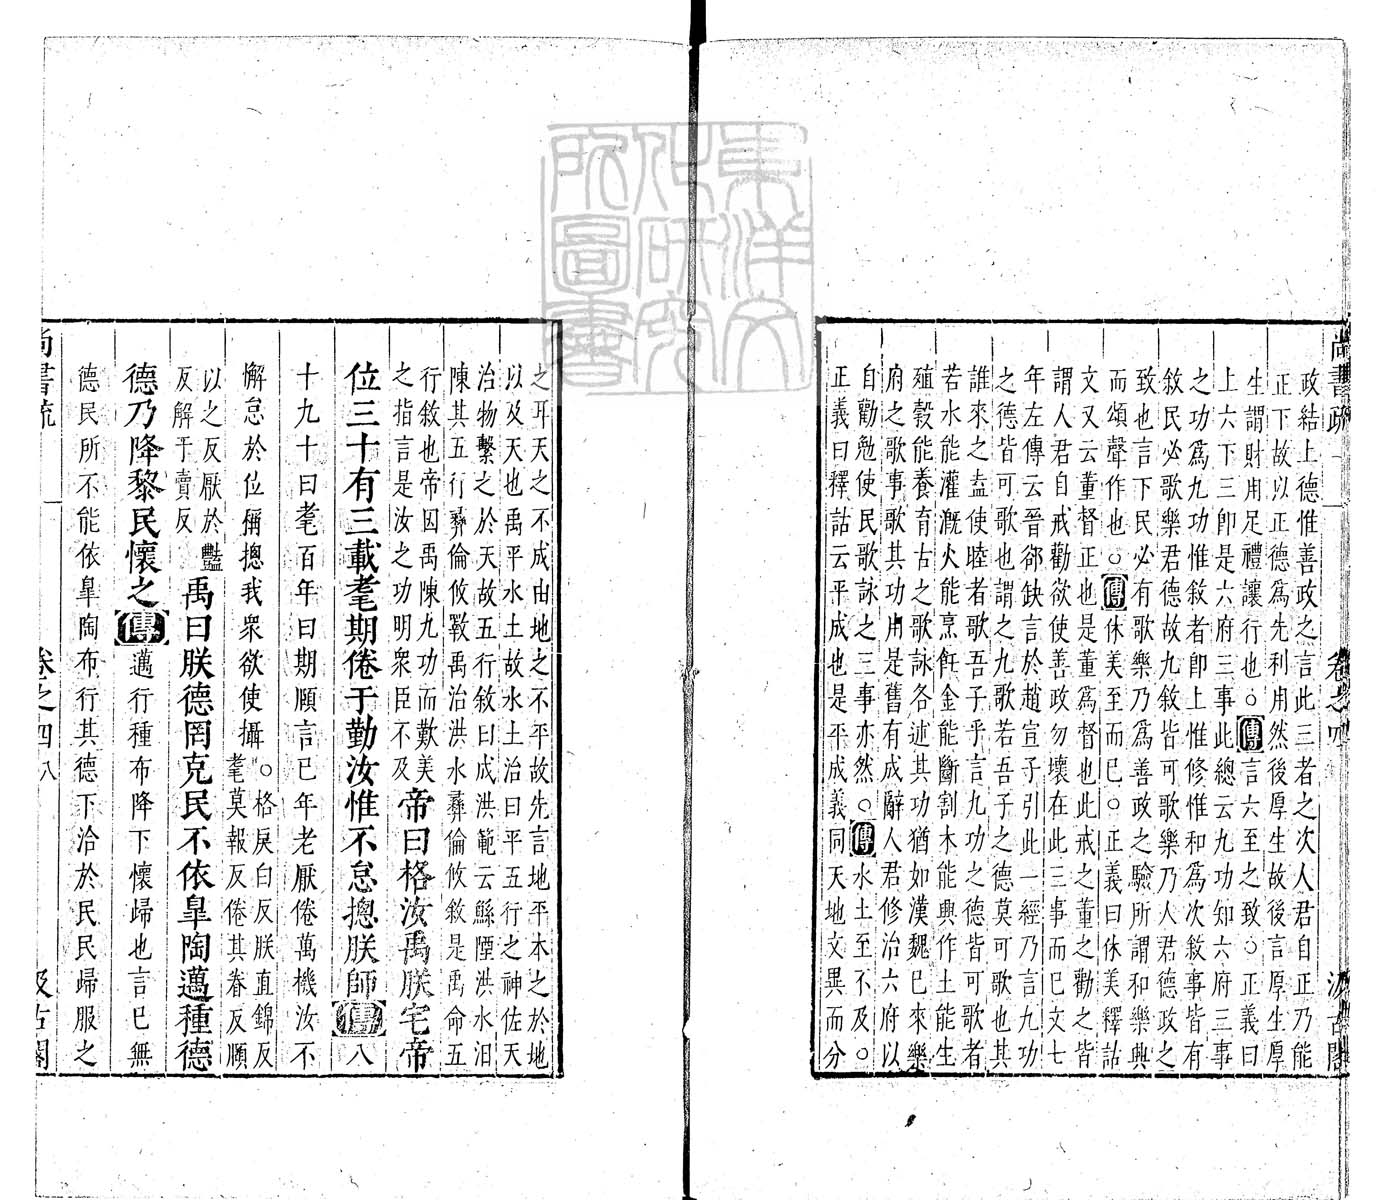 尚書疏 卷之四 汲古閣
政結上德惟善政之言此三者之次人君自正乃能
正下故以正德爲先利用然後厚生故後言厚生厚
生謂財用足禮讓行也○傳言六至之致○正義曰
上六下三卽是六府三事此總云九功知六府三事
之功爲九功惟敘者卽上惟修惟和爲次敘事皆有
敘民必歌樂君德故九敘皆可歌樂乃人君德政之
致也言下民必有歌樂乃爲善政之驗所謂和樂興
而頌聲作也○傳休美至而已○正義曰休美釋詁
文又云董督正也是董爲督也此戒之董之勸之皆
謂人君自戒勸欲使善政勿壞在此三事而已文七
年左傳云晉郤缺言於趙宣子引此一經乃言九功
之德皆可歌也謂之九歌若吾子之德莫可歌也其
誰來之盍使睦者歌吾子乎言九功之德皆可歌者
若水能灌溉火能烹飪金能斷割木能興作土能生
殖穀能養育古之歌詠各述其功猶如漢魏已來樂
府之歌事歌其功用是舊有成辭人君修治六府以
自勸勉使民歌詠之三事亦然○傳水土至不及○
正義曰釋詁云平成也是平成義同天地文異而分
之耳天之不成由地之不平故先言地平本之於地
以及天也禹平水土故水土治曰平五行之神佐天
治物繫之於天故五行敘曰成洪範云鯀陻洪水汩
陳其五行彝倫攸斁禹治洪水彝倫攸敘是禹命五
行敘也帝因禹陳九功而歎美
之指言是汝之功明衆臣不及帝曰格汝禹朕宅帝
位三十有三載耄期倦于勤汝惟不怠摠朕師傳八
十九十曰耄百年曰期頤言已年老厭倦萬機汝不
懈怠於位稱摠我衆欲使攝○格庚白反朕直錦反
耄莫報反倦其眷反頤
以之反厭於豔
反解于賣反禹曰朕德罔克民不依皐陶邁種德
德乃降黎民懷之傳邁行種布降下懷歸也言已無
德民所不能依皐陶布行其德下洽於民民歸服之
尚書疏 卷之四 八 汲古閣
東洋文化研究所圖書